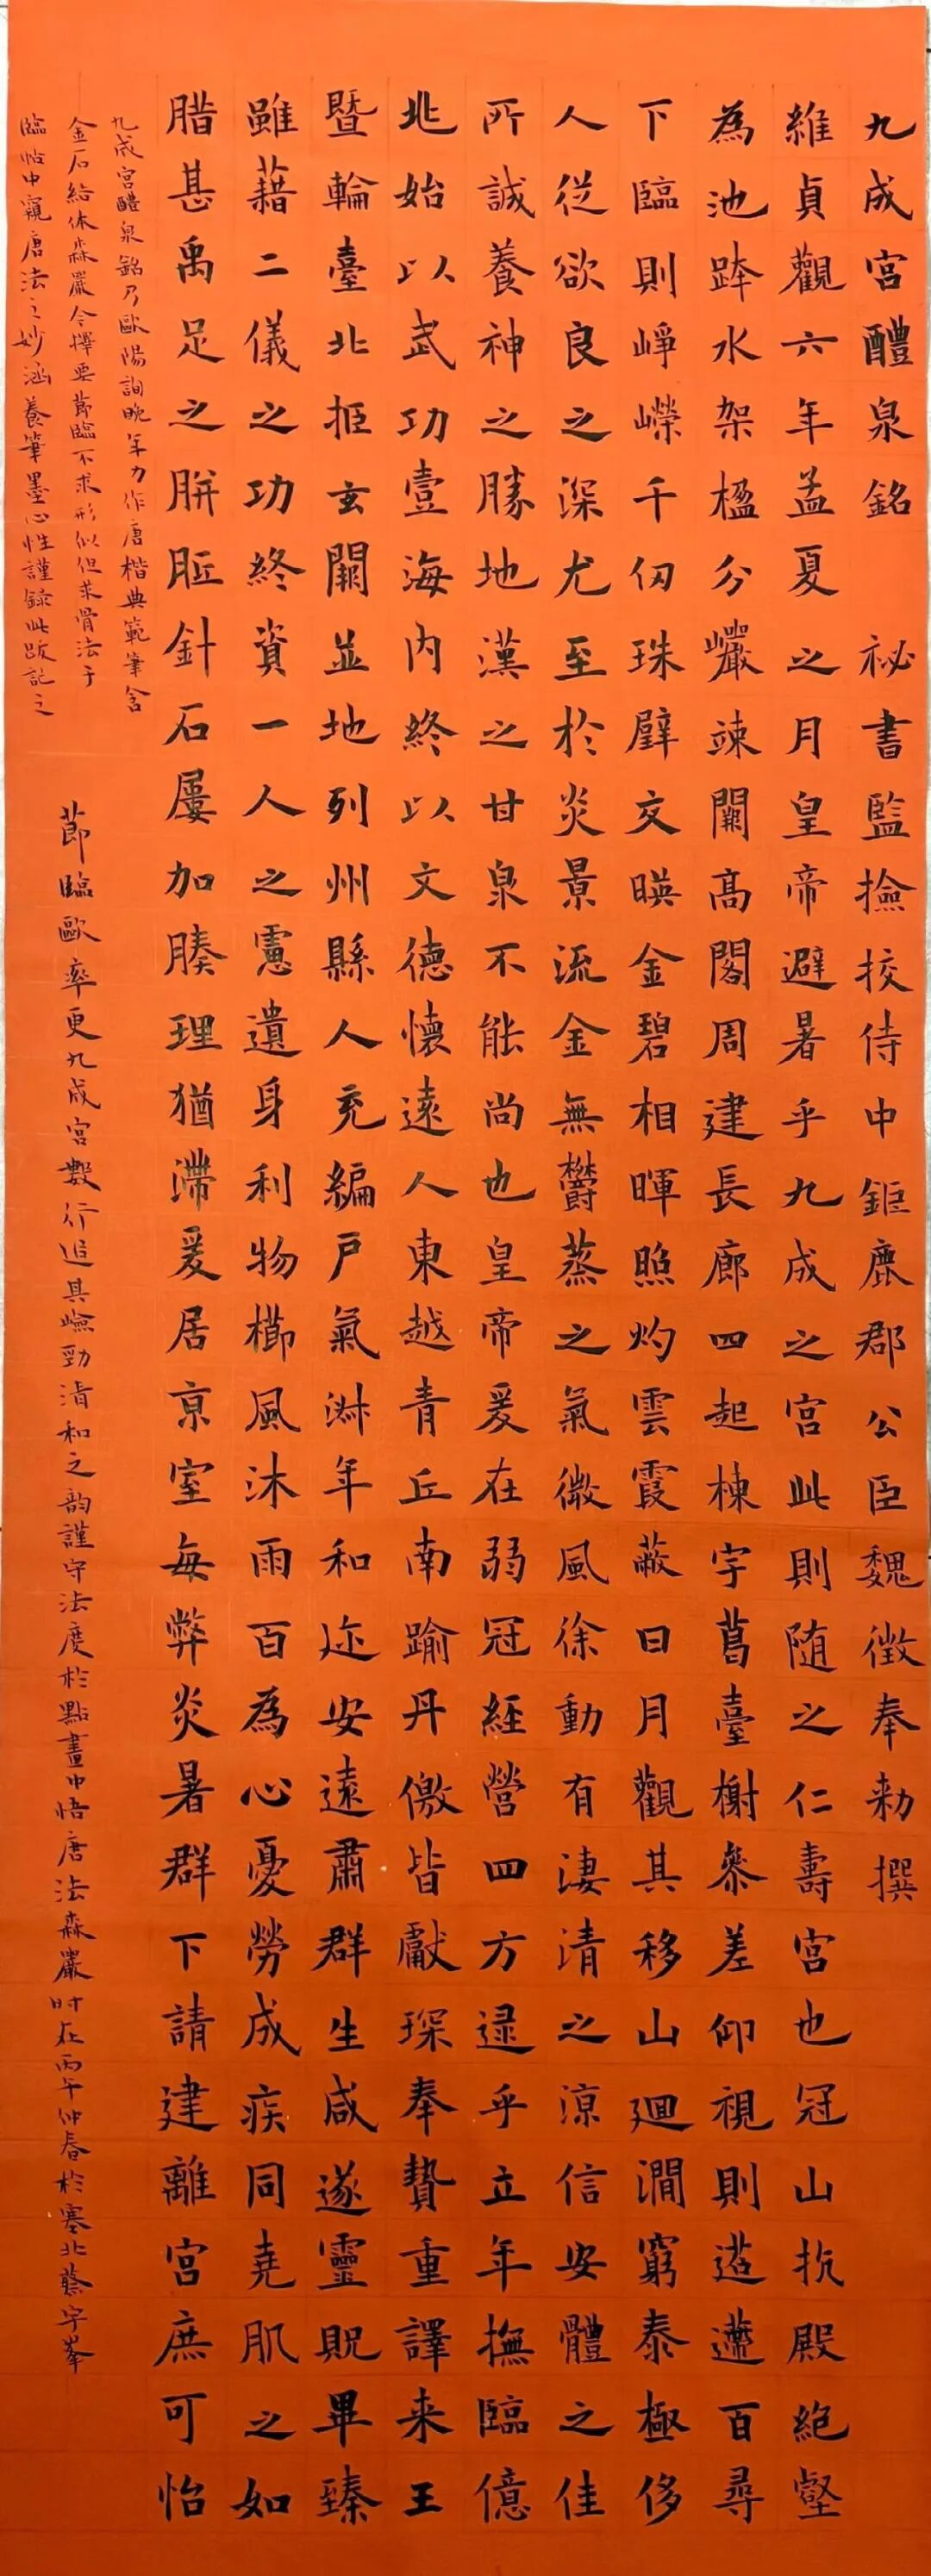 九成宮醴泉銘 祕書監撿挍侍中鉅鹿郡公臣魏徵奉勑撰
維貞觀六年孟夏之月皇帝避暑乎九成之宮此則随之仁壽宮也冠山抗殿絕壑
為池跨水架楹分巖竦闕高閣周建長廊四起棟宇葛臺榭叅差仰視則迢遰百尋
下臨則崢嶸千仞珠璧交暎金碧相暉照灼雲霞蔽日月觀其移山迴澗窮泰極侈
人從欲良之深尤至於炎景流金無欝蒸之氣微風徐動有淒清之凉信安體之佳
所誠養神之勝地漢之甘泉不能尚也皇帝爰在弱冠經營四方逯乎立年撫臨億
兆始以武功壹海内終以文德懷遠人東越青丘南踰丹儌皆獻琛奉贄重譯来王
暨輪臺北拒玄闕並地列州縣人充編戶氣淋年和迩安遠肅群生咸遂靈貺畢臻
雖藉二儀之功終資一人之慮遺身利物櫛風沐雨百為心憂勞成疾同堯肌之如
腊甚禹足之胼胝針石屢加腠理猶滯爰居京室每弊炎暑群下請建離宮庶可怡
九成宮醴泉銘乃歐陽詢晚年力作唐楷典範筆含
金石結体森嚴今擇要節臨不求形似但求骨法于
臨帖中窺唐法之妙涵養筆墨心性謹錄此跋記之
節臨歐率更九成宮數行追其嶮勁清和之韵謹守法度於點畫中悟唐法森嚴时在丙午仲春於塞北蔡宇峯